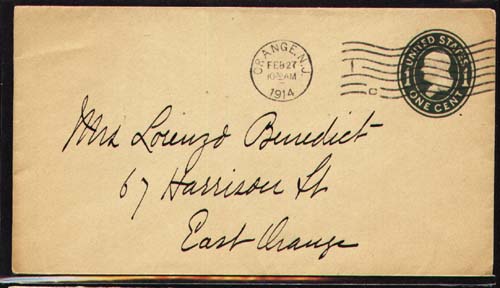 ORANGE, N.J.
FEB 27
10-AM
1914
1
C
UNITED STATES
1 1
ONE CENT
Mrs Lorenzo Benedict
67 Harrison St
East Orange